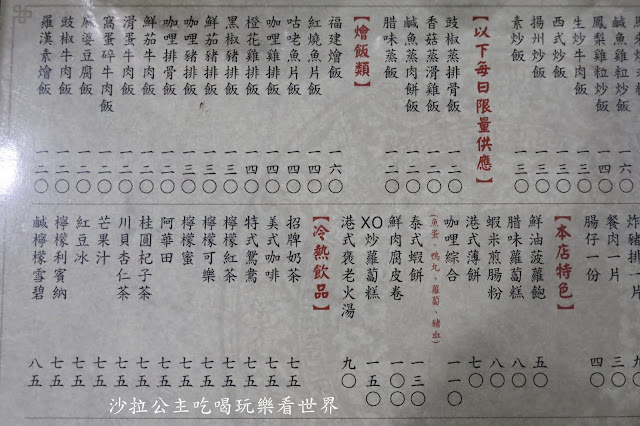 鹹魚雞粒炒飯 一六〇
鳳梨雞粒炒飯 一四〇
生炒牛肉飯 一三〇
西式炒飯 一三〇
揚州炒飯 一三〇
素炒飯 一三〇
【以下每日限量供應】
豉椒蒸排骨飯 一二〇
香菇蒸滑雞飯 一二〇
鹹魚蒸肉餅飯 一二〇
臘味蒸飯 一二〇
【燴飯類】
福建燴飯 一六〇
紅燒魚片飯 一四〇
咕咾魚片飯 一四〇
咖哩雞排飯 一四〇
橙花雞排飯 一四〇
黑椒豬排飯 一三〇
鮮茄豬排飯 一三〇
咖哩豬排飯 一三〇
咖哩排骨飯 一二〇
鮮茄牛肉飯 一二〇
滑蛋牛肉飯 一二〇
窩蛋碎牛肉飯 一二〇
麻婆豆腐飯 一二〇
豉椒牛肉飯 一二〇
羅漢素燴飯 一二〇
炸豬排一片 九〇
餐肉一片 三〇
腸仔一份 四〇
【本店特色】
鮮油菠蘿飽 五〇
臘味蘿蔔糕 八〇
蝦米煎腸粉 八〇
港式薄餅 七〇
咖哩綜合 一一〇
(魚蛋、鴨丸、蘿蔔、豬血)
泰式蝦餅 一三〇
鮮肉腐皮卷 一〇〇
XO炒蘿蔔糕 一五〇
港式褒老火湯 九〇
【冷熱飲品】
招牌奶茶 七五
美式咖啡 七五
特式鴛鴦 七五
檸檬紅茶 七五
檸檬可樂 七五
檸檬蜜 七五
阿華田 七五
桂圓杞子茶 七五
川貝杏仁茶 七五
芒果汁 七五
紅豆冰 七五
檸檬利賓納 七五
鹹檸檬雪碧 八五
沙拉公主吃喝玩樂看世界